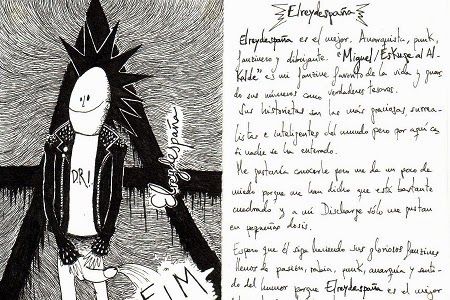 Elreydespaña
Elreydespaña es el mejor. Anarquista, punk,
fanzinero y dibujante. "Miguel/Eskupe al Al-
kalde" es mi fanzine favorito de la vida y guar-
do sus números como verdaderos tesoros.
Sus historietas son las más graciosas, surrea-
listas e inteligentes del mundo pero por aquí ca-
si nadie se ha enterado.
Me gustaría conocerle pero me da un poco de
miedo porque me han dicho que está bastante
cuadrado y a mí Discharge sólo me gustan
en pequeñas dosis.
Espero que él siga haciendo sus gloriosos fanzines
llenos de pasión, rabia, punk, anarquía y senti-
do del humor porque Elreydespaña es el mejor
D.R.I.
Elreydespaña